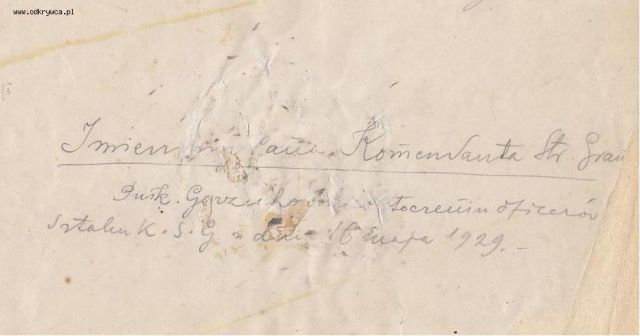 www.odkrywca.pl
Imieniny Pana Komendanta Str. Gran
Pułk. w otoczeniu oficerów
Sztabu K. S. G. z dnia 16 maja 1929. -